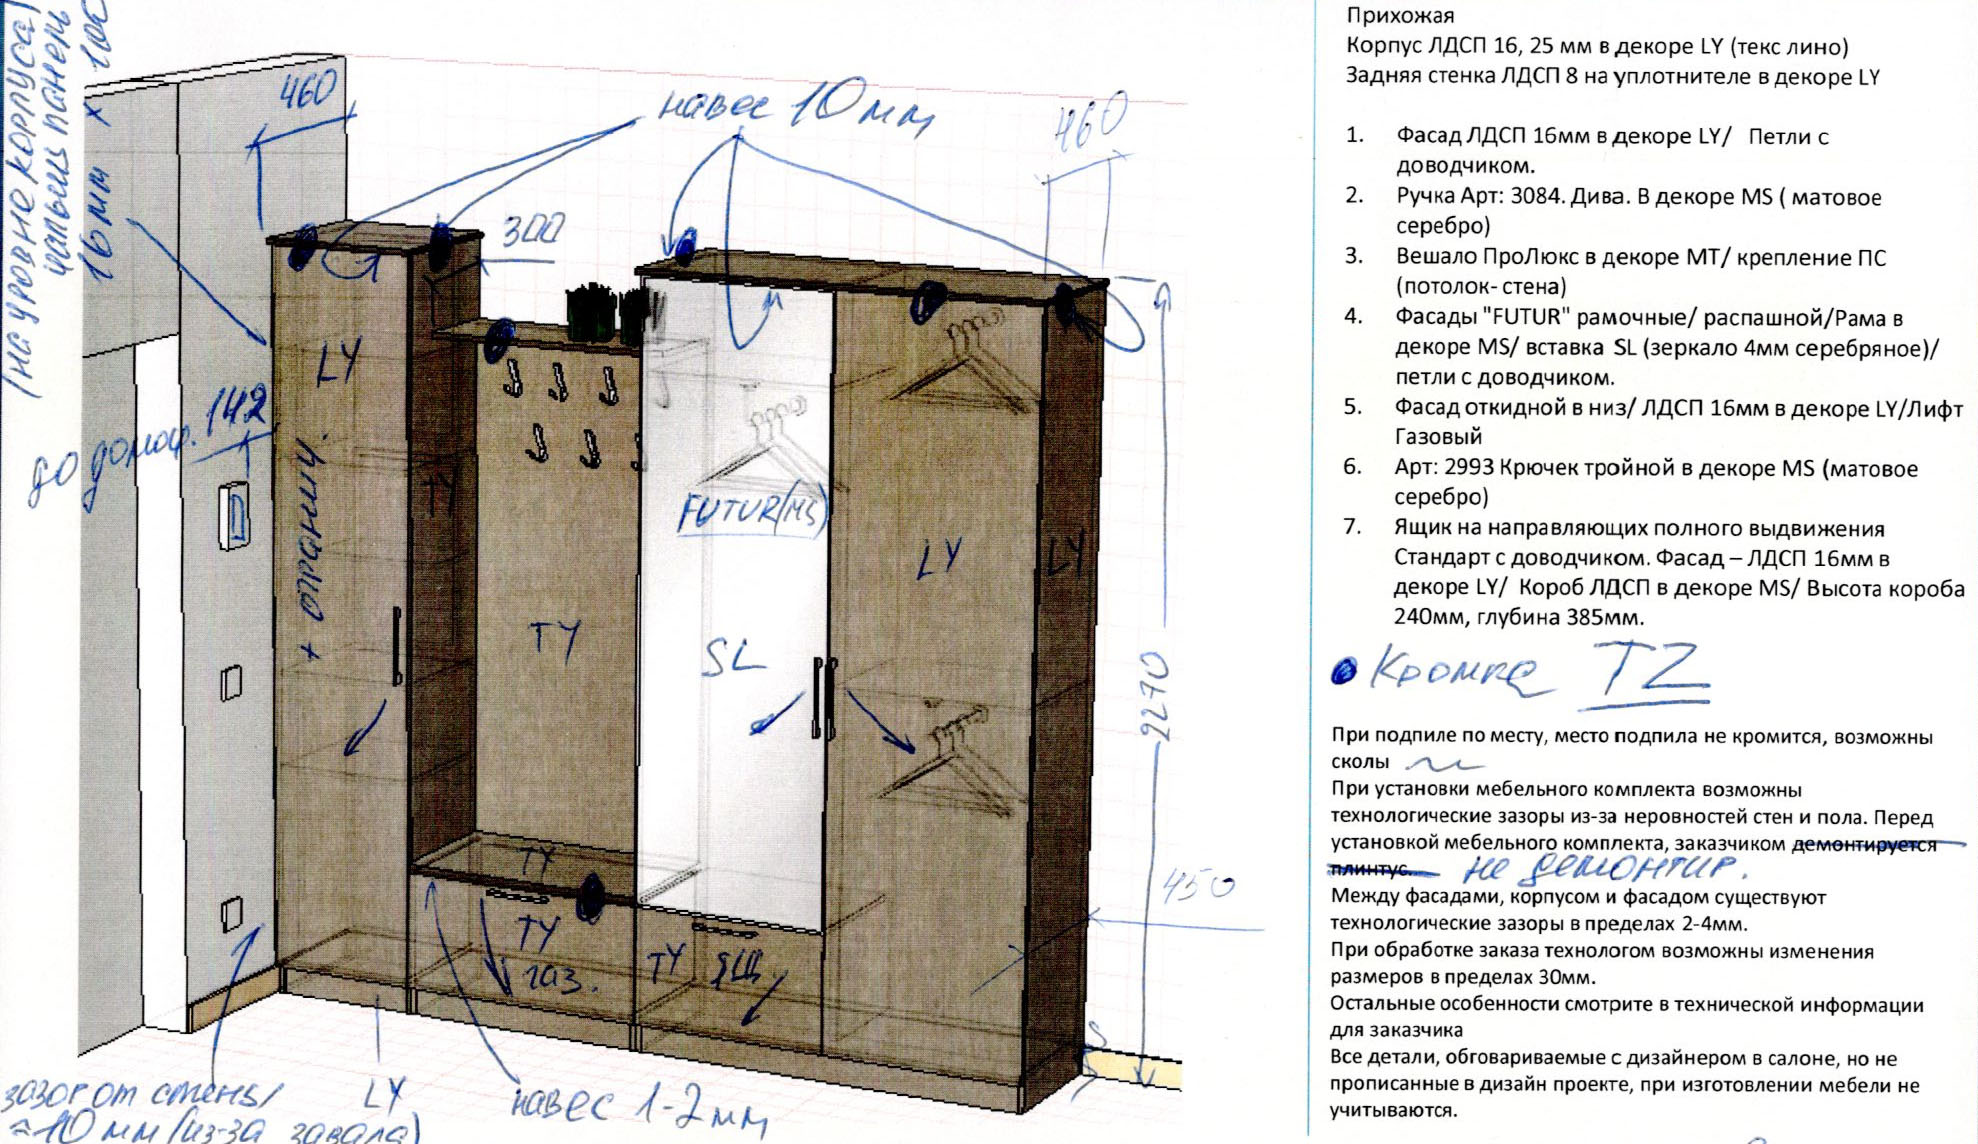 (на уровне корпуса)
16мм х
460
навес 10мм
460
300
LY
до домоф. 142
TY
FUTUR(MS)
LY
LY
TY
SL
2270
TY
450
TY
газ.
TY ящ
зазор от стены
≈10мм (из-за завала)
LY
навес 1-2мм
Прихожая
Корпус ЛДСП 16, 25 мм в декоре LY (текс лино)
Задняя стенка ЛДСП 8 на уплотнителе в декоре LY
1. Фасад ЛДСП 16мм в декоре LY/ Петли с
доводчиком.
2. Ручка Арт: 3084. Дива. В декоре MS ( матовое
серебро)
3. Вешало ПроЛюкс в декоре МТ/ крепление ПС
(потолок- стена)
4. Фасады "FUTUR" рамочные/ распашной/Рама в
декоре MS/ вставка SL (зеркало 4мм серебряное)/
петли с доводчиком.
5. Фасад откидной в низ/ ЛДСП 16мм в декоре LY/Лифт
Газовый
6. Арт: 2993 Крючек тройной в декоре MS (матовое
серебро)
7. Ящик на направляющих полного выдвижения
Стандарт с доводчиком. Фасад – ЛДСП 16мм в
декоре LY/ Короб ЛДСП в декоре MS/ Высота короба
240мм, глубина 385мм.
Кромка TZ
При подпиле по месту, место подпила не кромится, возможны
сколы
При установки мебельного комплекта возможны
технологические зазоры из-за неровностей стен и пола. Перед
установкой мебельного комплекта, заказчиком демонтируется
плинтус. не демонтир.
Между фасадами, корпусом и фасадом существуют
технологические зазоры в пределах 2-4мм.
При обработке заказа технологом возможны изменения
размеров в пределах 30мм.
Остальные особенности смотрите в технической информации
для заказчика
Все детали, обговариваемые с дизайнером в салоне, но не
прописанные в дизайн проекте, при изготовлении мебели не
учитываются.